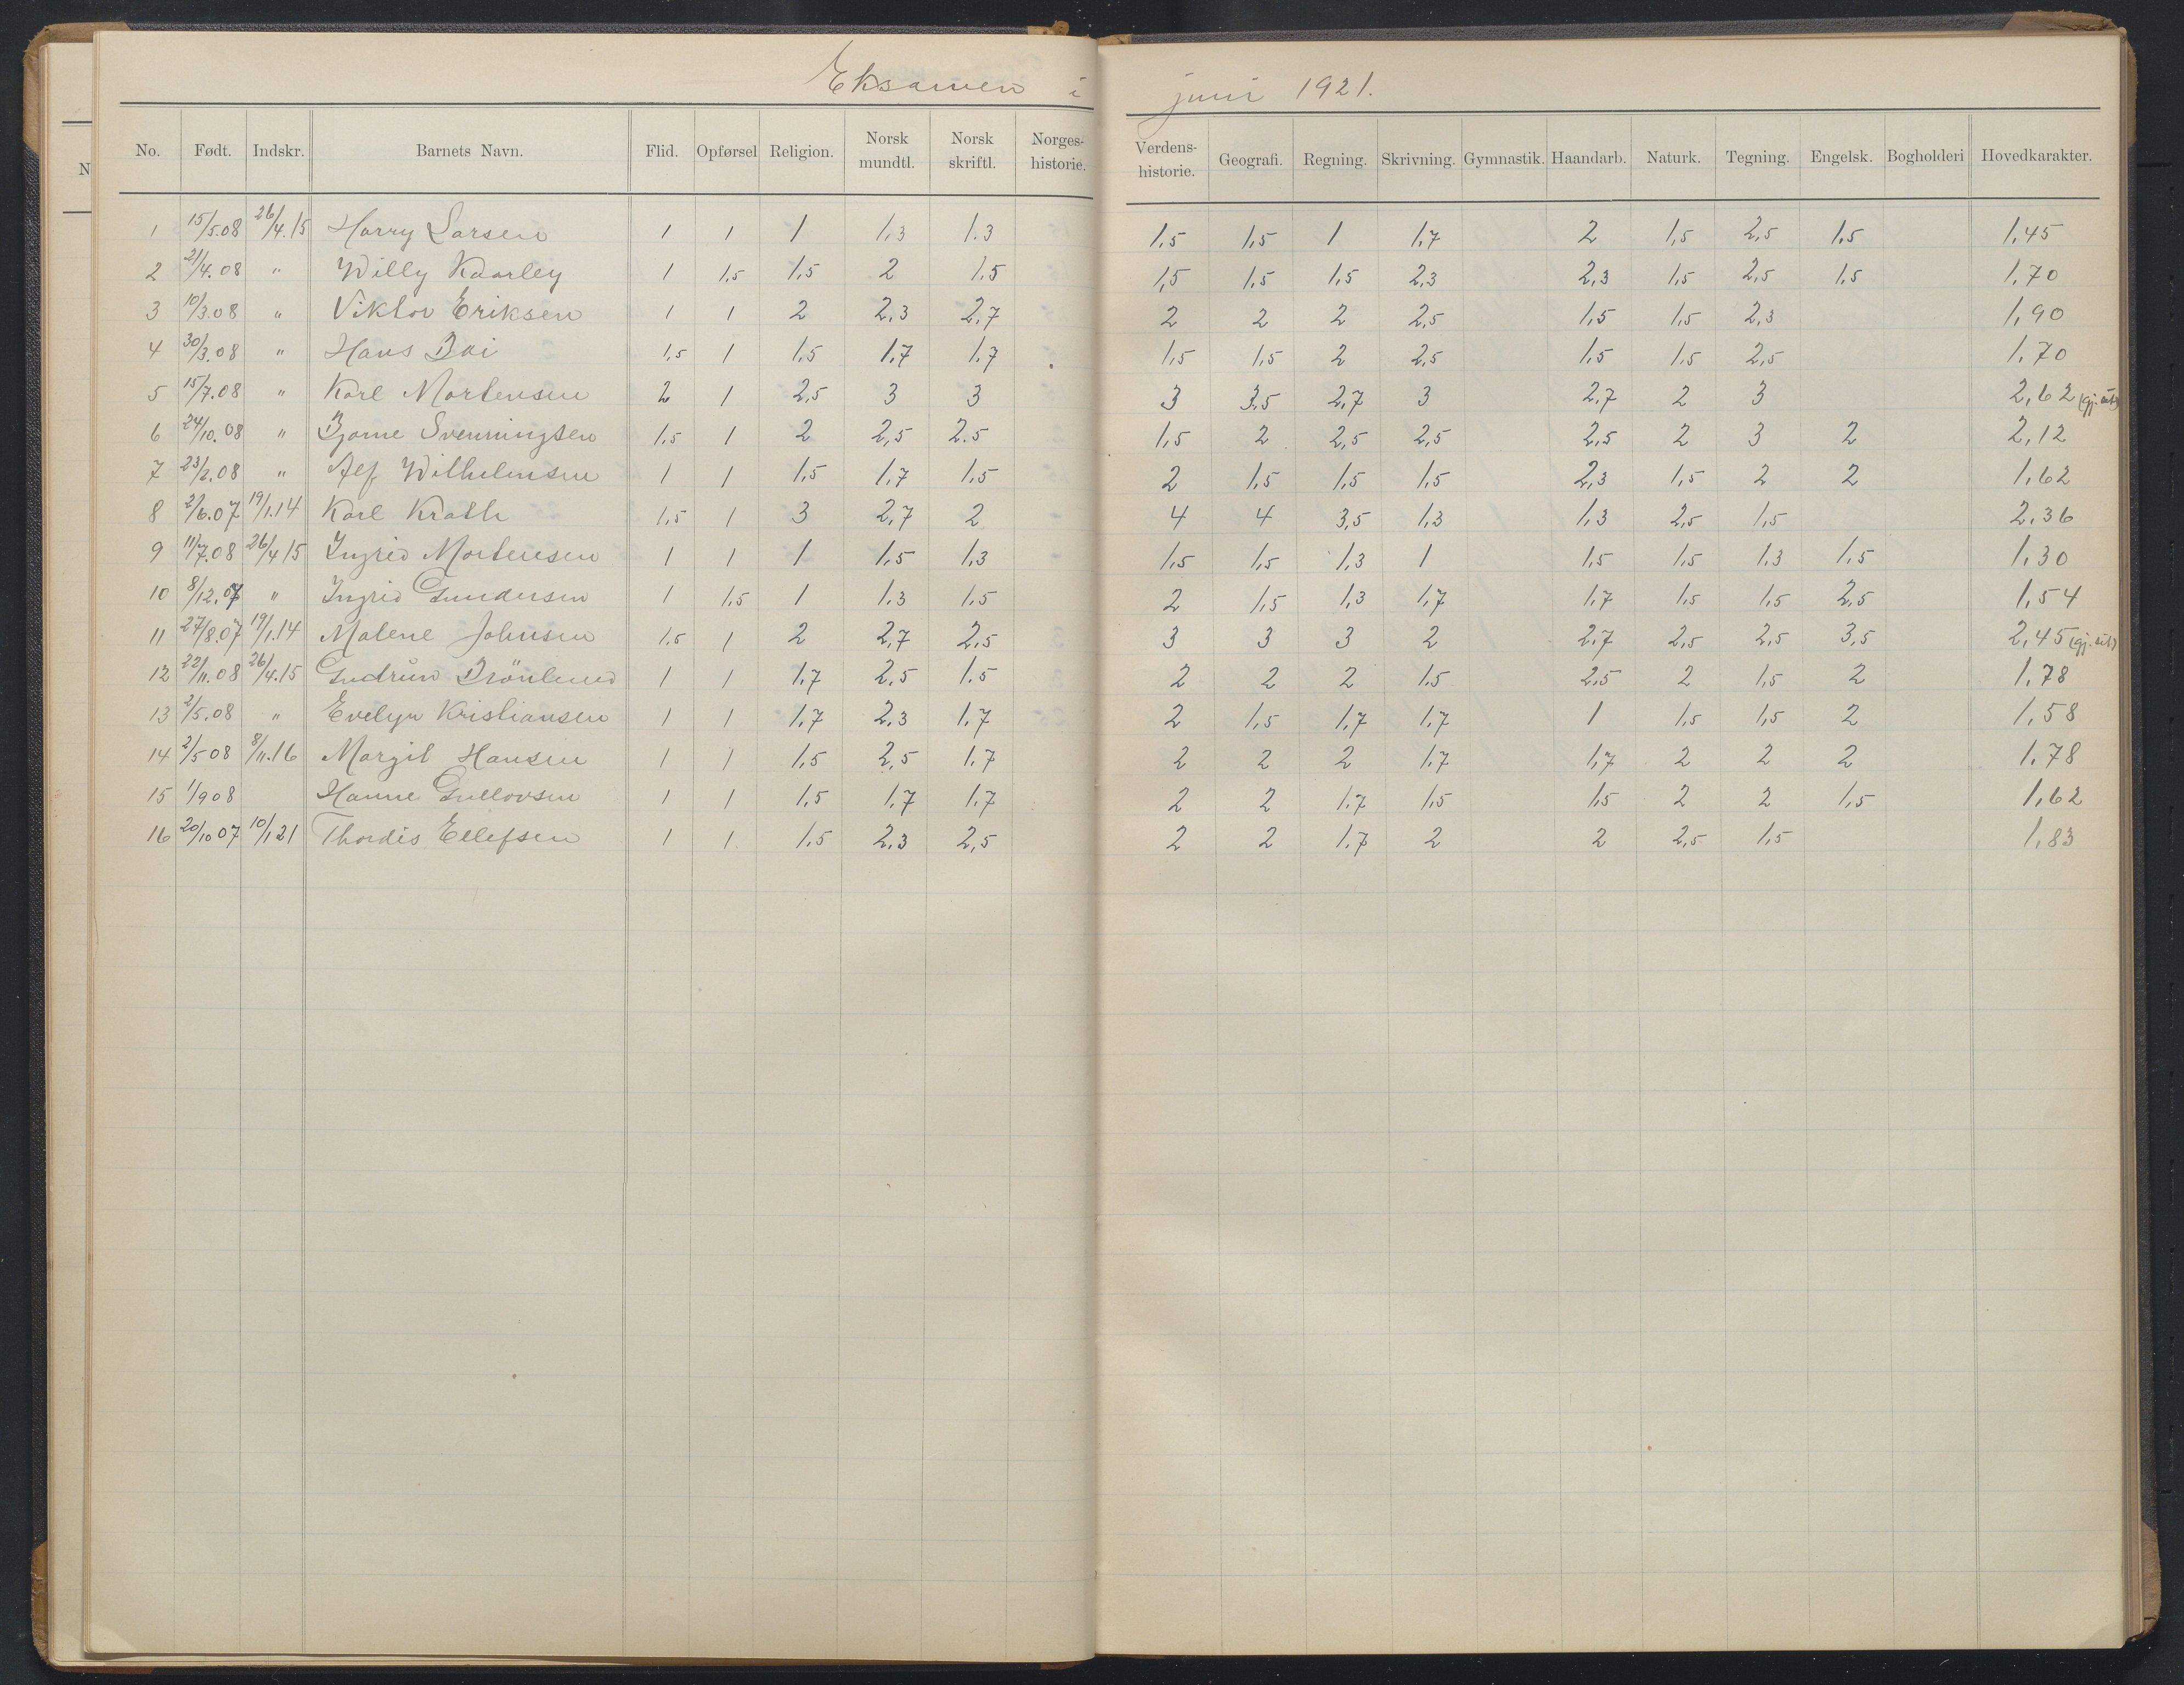 Eksamen i juni 1921.
N
No. Født. Indskr. Barnets Navn. Flid. Opførsel Religion. Norsk mundtl. Norsk skriftl. Norges-historie. Verdens-historie. Geografi. Regning. Skrivning. Gymnastik. Haandarb. Naturk. Tegning. Engelsk. Bogholderi Hovedkarakter.
1 15/5.08 26/4.15 Harry Larsen 1 1 1 1,3 1.3 1,5 1,5 1 1,7 2 1,5 2,5 1,5 1,45
2 21/4.08 " Willy Kaarley 1 1,5 1,5 2 1,5 1,5 1,5 1,5 2,3 2,3 1,5 2,5 1,5 1,70
3 10/3.08 " Viktor Eriksen 1 1 2 2,3 2,7 2 2 2 2,5 1,5 1,5 2,3 1,90
4 30/3.08 " Hans Boi 1,5 1 1,5 1,7 1,7 1,5 1,5 2 2,5 1,5 1,5 2,5 1,70
5 15/7.08 " Karl Mortensen 2 1 2,5 3 3 3 3,5 2,7 3 2,7 2 3 2,62 (gj. ut)
6 24/10.08 " Bjarne Svenningsen 1,5 1 2 2,5 2.5 1,5 2 2,5 2,5 2,5 2 3 2 2,12
7 23/2.08 " Alf Wilhelmsen 1 1 1,5 1,7 1,5 2 1,5 1,5 1,5 2,3 1,5 2 2 1,62
8 2/6.07 19/1.14 Karl Krath 1,5 1 3 2,7 2 4 4 3,5 1,3 1,3 2,5 1,5 2,36
9 11/7.08 26/4 15 Ingrid Mortensen 1 1 1 1,5 1,3 1,5 1,5 1,3 1 1,5 1,5 1,3 1,5 1,30
10 8/12.07 " Ingrid Gundersen 1 1,5 1 1,3 1,5 2 1,5 1,3 1,7 1,7 1,5 1,5 2,5 1,54
11 27/8.07 19/1.14 Malene Johnsen 1,5 1 2 2,7 2,5 3 3 3 2 2,7 2,5 2,5 3,5 2,45 (gj. ut)
12 22/11.08 26/4.15 Gudrun Brönlund 1 1 1,7 2,5 1.5 2 2 2 1,5 2,5 2 1,5 2 1,78
13 2/5.08 " Evelyn Kristiansen 1 1 1,7 2,3 1,7 2 1,5 1,7 1,7 1 1,5 1,5 2 1,58
14 2/5 08 8/11.16 Margit Hansen 1 1 1,5 2,5 1,7 2 2 2 1,7 1,7 2 2 2 1,78
15 1/9 08 Hanne Gullovsen 1 1 1,5 1,7 1,7 2 2 1,7 1,5 1,5 2 2 1,5 1,62
16 20/10 07 10/1 21 Thordis Ellefsen 1 1 1,5 2,3 2,5 2 2 1,7 2 2 2,5 1,5 1,83